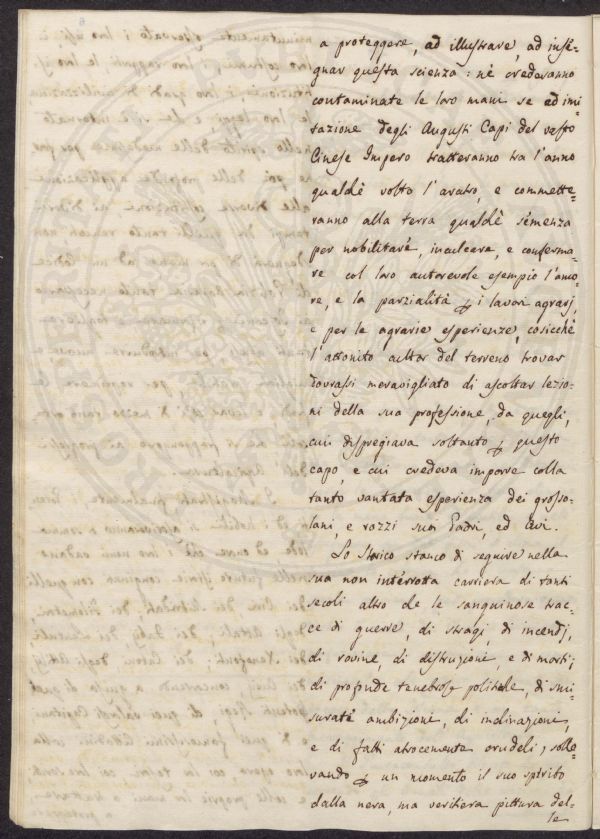 a proteggere, ad illustrare, ad inse=
gnar questa scienza: nè crederanno
contaminate le loro mani se ad imi
tazione degli Augusti Capi del vasto
Cinese Impero tratteranno tra l'anno
qualche volta l'aratro, e commette=
ranno alla terra qualche semenza
per nobilitare, inculcare, e conferma=
re col loro autorevole esempio l'amo=
re, e la parzialità p i lavori agrarj,
e per le agrarie esperienze, cosicchè
l'attonito cultor del terreno trovar
dovrassi meravigliato di ascoltar lezio=
ni della sua professione, da quegli,
cui dispregiava soltanto p questo
capo, e cui credeva imporre colla
tanto vantata esperienza dei grosso=
lani e rozzi suoi Padri, ed Avi.
Lo Storico stanco di seguire nella
sua non interrotta carriera di tanti
secoli altro che le sanguinose trac=
ce di guerre, di stragi, di incendj,
di rovine, di distruzioni, e di morti;
di profonde tenebrose politiche, di smi=
surate ambizioni, di inclinazioni,
e di fatti atrocemente crudeli, solle=
vando p un momento il suo spirito
dalla nera, ma veritiera pittura del=
le